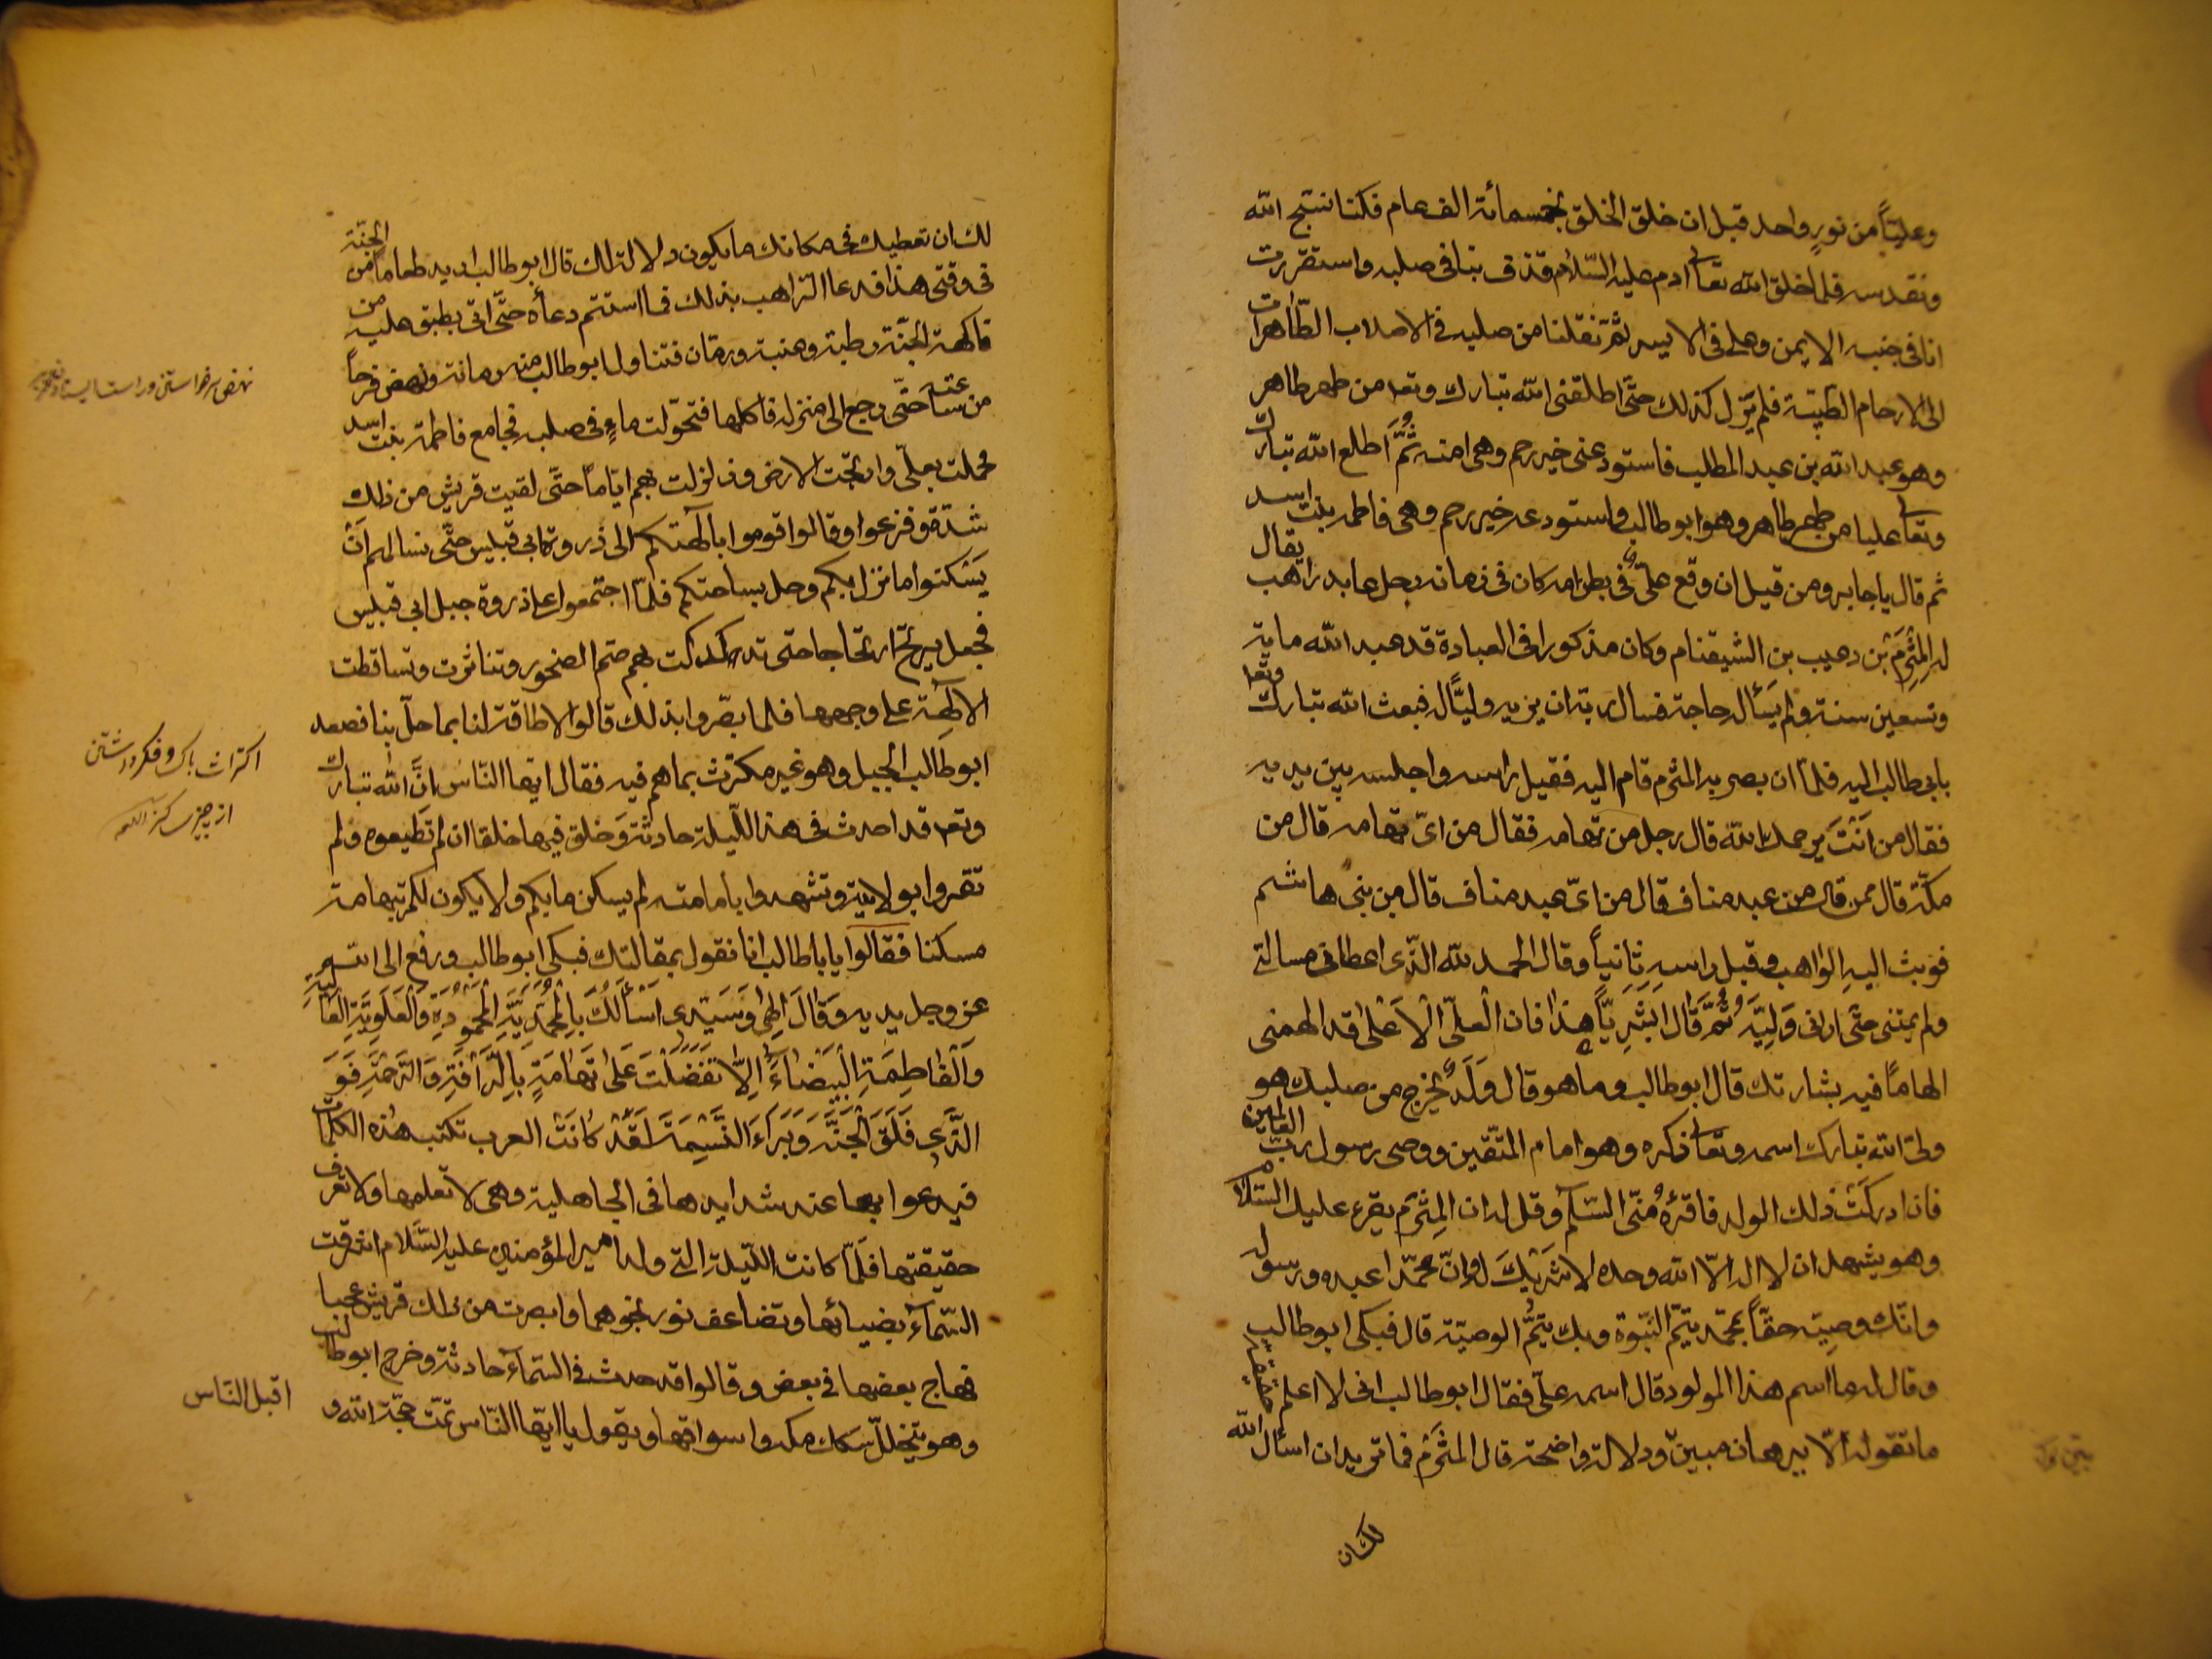 وعليّاً من نورٍ واحد قبل ان خلق الخلق بخمسمائة الف عام فكنا نسبّح الله
ونقدسه فلما خلق الله تعالى ادم عليه السّلام قذف بنا في صلبه واستقررت
انا في جنبه الايمن وعلي في الايسر ثمّ نقلنا من صلبه في الاصلاب الطّاهرات
الى الارحام الطيّبة فلم يزل كذلك حتّى اطلقني الله تبارك وتعا من طهر طاهر
وهو عبد الله بن عبد المطلب فاستودعني خير رحم وهي امنه ثُمَّ اطلع الله تبارك
وتعالى عليا من طهر طاهر وهو ابو طالب واستودعه خير رحم وهي فاطمه بنت اسد
ثم قال يا جابر ومن قبل ان وقع عليّ في بطن امه كان في زمانه رجل عابد راهب يقال
له المُثرِمْ بْن دعيب بن الشيقنام وكان مذكورا في العبادة قد عبد الله ماية
وتسعين سنة ولم يَسأله حاجة فسال ربه ان يريه وليّاً له فبعث الله تبارك وتعا
بابي طالب اليه فلمّا ان بصر به المثرم قام اليه فقبل راسه واجلسه بين يديه
فقال من اَنْتَ يرحمك الله قال رجل من تهامه فقال من ايّ تهامه قال من
مكّة قال ممن قال من عبد مناف قال من ايّ عبد مناف قال من بني هاشم
فوثب اليه الراهب وقبل راسه ثانياً وقال الحمد لله الّذى اعطاني مسالتي
ولم يمتني حتّى اراني وَلِيَّه ثُمَّ قَالَ اَبْشِر يا هذا فان الْعليّ الْاَعْلى قد الهمني
الهاماً فيه بشارتك قال ابو طالب وما هو قال وَلَدٌ يخرج من صلبك هو
وليّ الله تبارك اسمه وتعالى ذكره وهو امام المتّقين ووصي رسول ربّ العالمين
فان ادركتَ ذلك الولد فاقرئهُ منّى السّلام وقل له ان المثرم يقرء عليك السّلام
وهو يشهد ان لا اله الّا الله وحده لا شَريْكَ له وانّ محمّدا عبده ورسوله
وانّك وصيّه حقّاً بمحمّد يتمّ النّبوة وبك يتمُّ الوصيّة قال فبكى ابو طالب
وقال له ما اسم هذا المولود قال اسمه عليّ فقال ابو طالب انى لا اعلم حقيقة
ما تقوله الّا ببرهان مبين ودلالة واضحة قال المثرم فما تريد ان اسأل الله
لك ان
لك ان تعطيك في مكانك ما يكون دلالة لك قال ابو طالب اريد طعاما من الجنّة
في وقتي هذا فدعا الرّاهب بذلك فما استتم دعاءه حتّى اتى بطبق عليه من
فاكهة الجنّة رطبة وعنبة ورمّان فتناول ابو طالب منه رمانة ونهض فرحاً
من ساعته حتّى رجع الى منزله فاكلها فتحوّلت ماءٍ في صلبه فجامع فاطمة بنت اسد
فحملت بعليّ وارتجت الارض وزلزلت بهم ايّاماً حتّى لقيت قريش من ذلك
شدّة وفزعوا وقالوا قوموا بآلهتكم الى ذروة ابي قبيس حتّى نسالهم اَنْ
يَسْكنوا ما نزل بكم وحل بساحتكم فلمّا اجتمعوا على ذروة جبل ابي قبيس
فجعل يرتج ارتجاجا حتى تدكدكت بهم صم الصخور وتناثرت وتساقطت
الالهة على وجهها فلما بصّروا بذلك قالوا لا طاقة لنا بما حلّ بنا فصعد
ابو طالب الجبل وهو غير مكترث بما هم فيه فقال ايّها النّاس انَّ الله تبارك
وتعا قد احدث فى هذا اللّيلة حادثة وَخلق فيها خلقا ان لم تطيعوه ولم
تقروا بولايته وتشهدوا بامامته لم يسكن ما بكم ولا يكون لكم بتهامة
مسكنا فقالوا يا با طالب انا نقول بمقالتك فبكى ابو طالب ورفع الى الله
عز وجل يديه وَقَالَ اِلهِى وَسَيّدِى اَسْأَلُكَ بِالْمُحَمَّدِيَّةِ الْمَحْمُودَةِ وَالْعَلَوِيَّةِ الْعَالِيَةِ
وَالْفَاطِمَةِ الْبَيْضَاءِ اِلَّا تَفَضَّلْتَ عَلَى تَهَامَةِ بِالرَّأْفَةِ وَالرَّحْمَةِ فَوَ
الَّذِى فَلَقَ الْجَنَّةَ وَبَرَاءَ النَّسِيْمَةَ لَقَدْ كَانَتْ العرب تكتب هذه الكلمات
فيدعوا بها عند شدايدها في الجاهلية وهي لا تعلمها ولا تعرف
حقيقتها فَلَمّا كانت اللّيلة الّتى ولد امير المؤمنين عليه السَّلام اشرقت
السّمآء بضيائها وتضاعف نور نجومها وابصرت من ذلك قريش عجبا
فهاج بعضها في بعض وقالوا قد حدث في السّمآء حادثة وخرج ابو طالب
وهو يتخلّل سكك مكه واسواقها ويقول يا ايّها النّاس تمّت حجّة الله و
اقبل النّاس
اكتراث باك وفكر داشتن